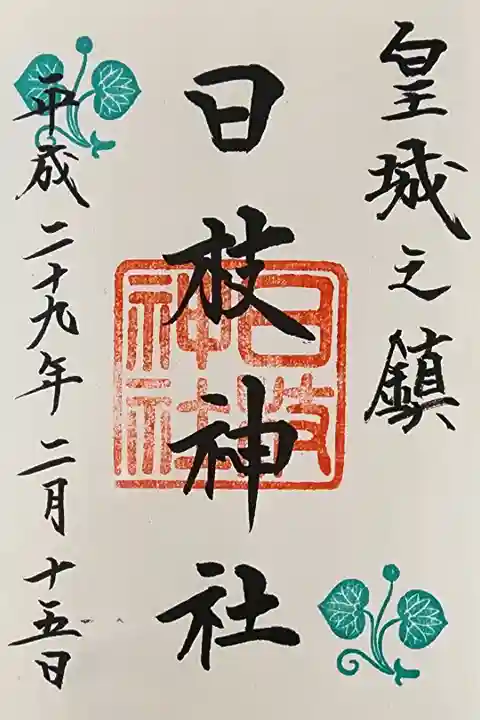 皇城之鎮
日枝神社
日枝神社
平成二十九年二月十五日